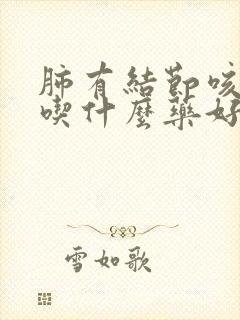 肺有結節咳
喫什麼藥好
雪如歌